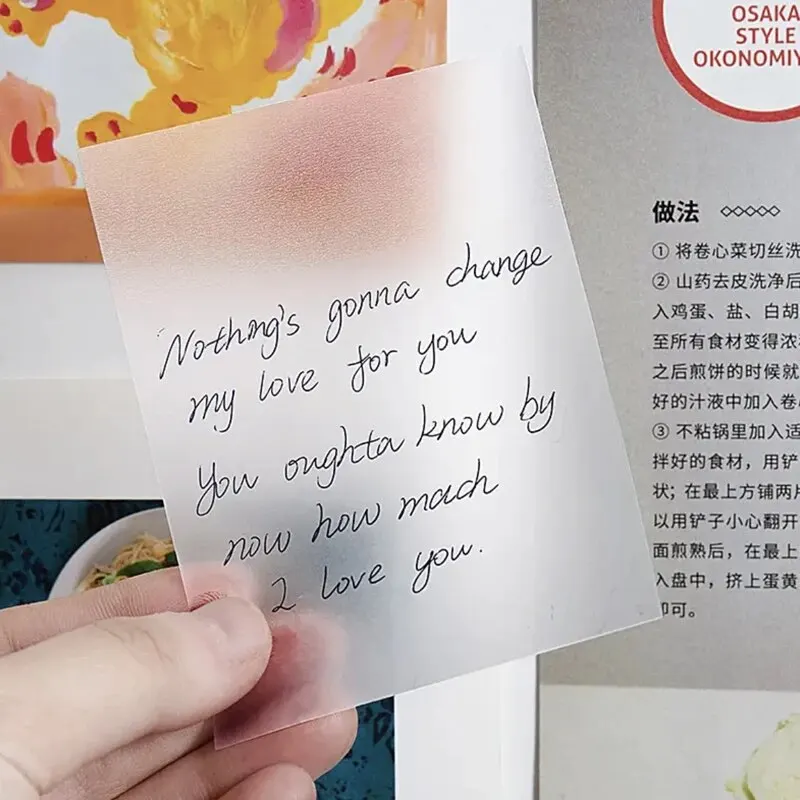 OSAKA
STYLE
OKONOMIY
Nothing's gonna change
my love for you
You oughta know by
now how mach
I love you.
做法
① 将卷心菜切丝洗
② 山药去皮洗净后
入鸡蛋、盐、白胡
至所有食材变得浓
之后煎饼的时候就
好的汁液中加入卷
③ 不粘锅里加入适
拌好的食材，用铲
状；在最上方铺两片
以用铲子小心翻开
面煎熟后，在最上
入盘中，挤上蛋黄
即可。